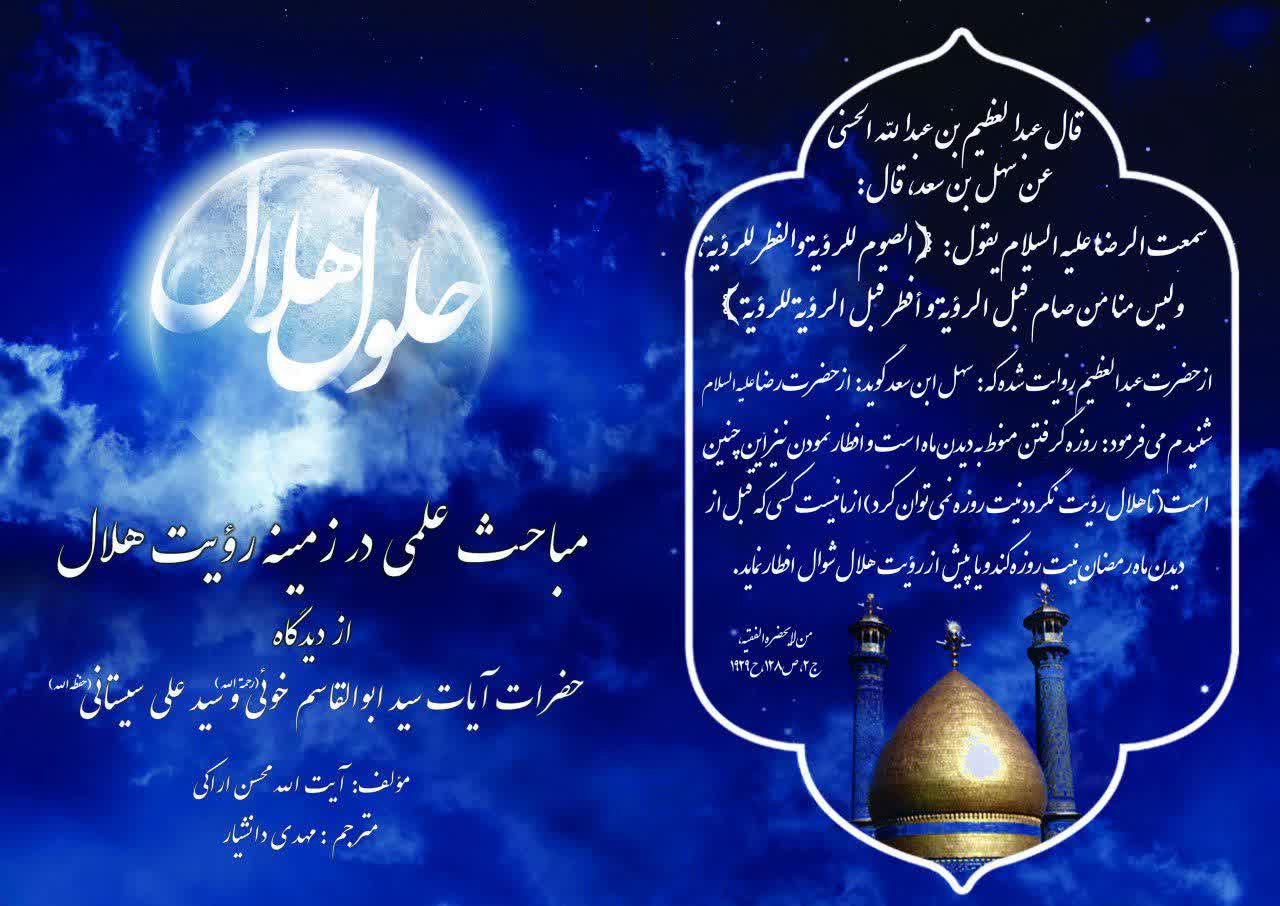 قال عبدالعظیم بن عبدالله الحسنی
عن سهل بن سعد، قال:
سمعت الرضا علیه السلام یقول: ﴿الصوم للرؤیة والفطر للرؤیة،
ولیس منا من صام قبل الرؤیة و أفطر قبل الرؤیة للرؤیة﴾
از حضرت عبدالعظیم روایت شده که: سهل ابن سعد گوید: از حضرت رضا علیه السلام
شنیدم می فرمود: روزه گرفتن منوط به دیدن ماه است و افطار نمودن نیز این چنین
است (تا هلال رؤیت نگردد نیت روزه نمی توان کرد) از ما نیست کسی که قبل از
دیدن ماه رمضان نیت روزه کند و یا پیش از رؤیت هلال شوال افطار نماید.
من لایحضره الفقیه،
ج۲، ص۱۲۸، ح۱۹۲۹
حلول هلال
مباحث علمی در زمینه رؤیت هلال
از دیدگاه
حضرات آیات سید ابوالقاسم خوئی (رحمة الله) و سید علی سیستانی (حفظه الله)
مؤلف: آیت الله محسن اراکی
مترجم : مهدی دانشیار